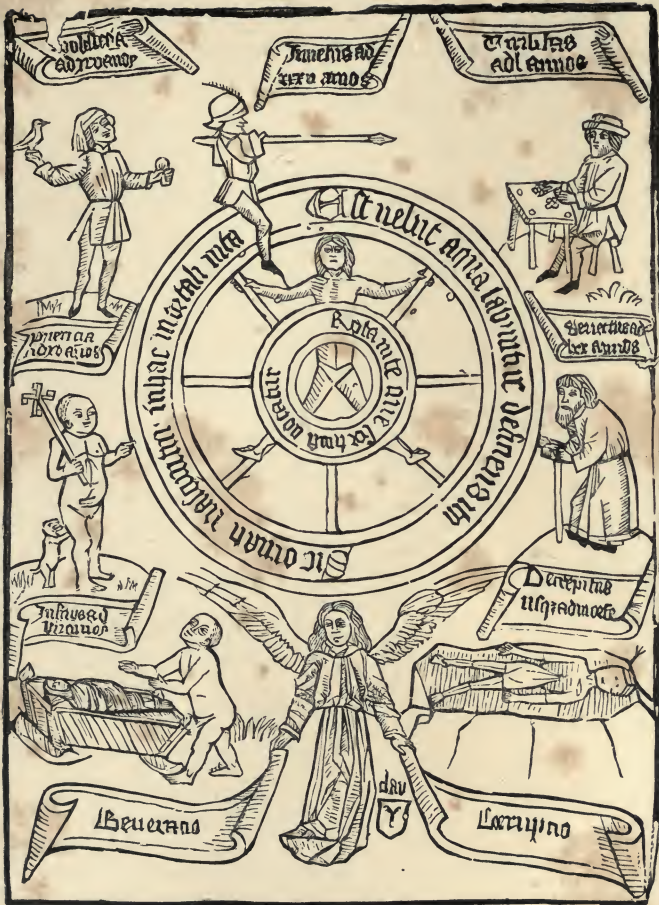 ad xxv anos
Juventus ad
xxxv annos
Virilitas
ad l annos
Est velut aqua labuntur deficiens ita
Sic ornati nascuntur in hac mortali vita
Rota vite que fortuna vocatur
puericia
ad xv anos
Senectus ad
lxx annos
Infans ad
vii annos
Decrepitus
usqz ad morte
Generacio
dav
Corrupcio